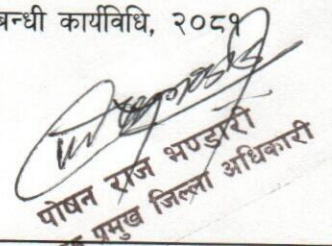 बन्धी कार्यविधि, २०८१
पोषन राज भण्डारी
प्रमुख जिल्ला अधिकारी